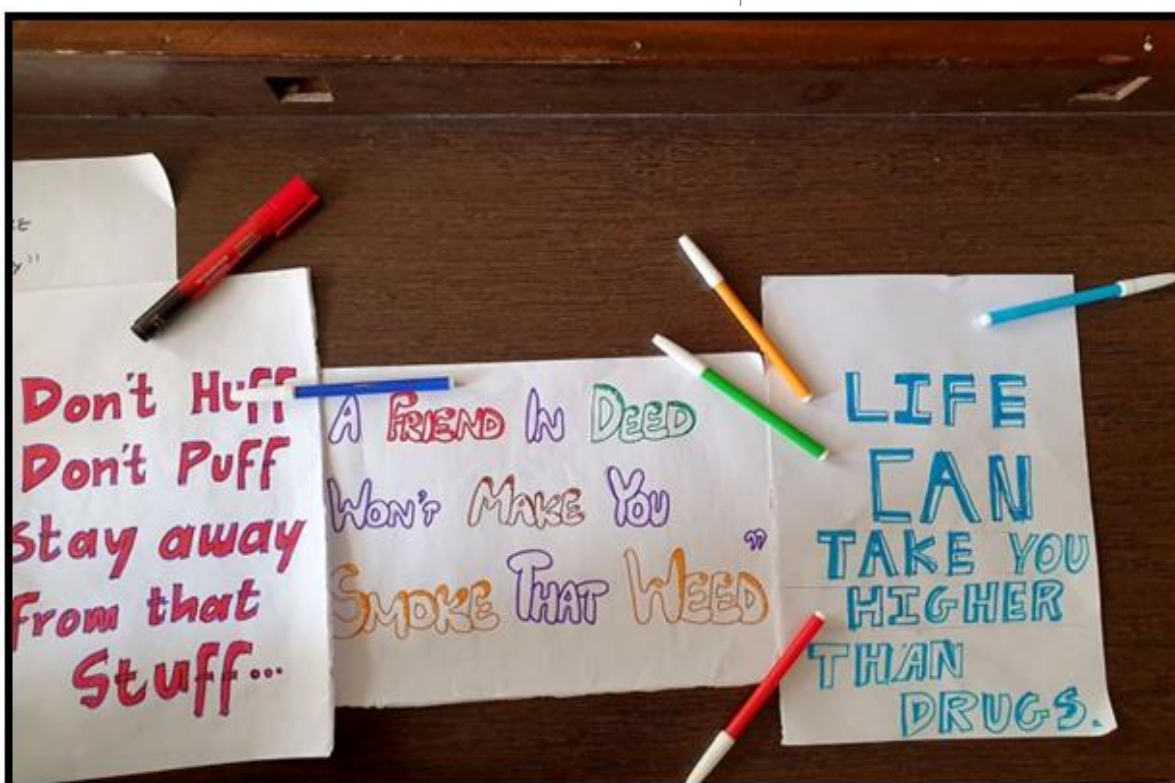 Don't Huff
Don't Puff
Stay away
from that
Stuff...
A FRIEND IN DEED
WON'T MAKE YOU
SMOKE THAT WEED"
LIFE
CAN
TAKE YOU
HIGHER
THAN
DRUGS.